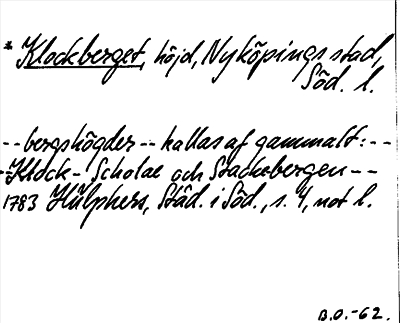 * Klockberget, höjd, Nyköpings stad,
Söd. l.
-- bergshögder -- kallas af gammalt: --
-- Klock- Scholae och Stacksbergen --
1783 Hülphers, Städ. i Söd., s. 4, not l.
B.O.-62.